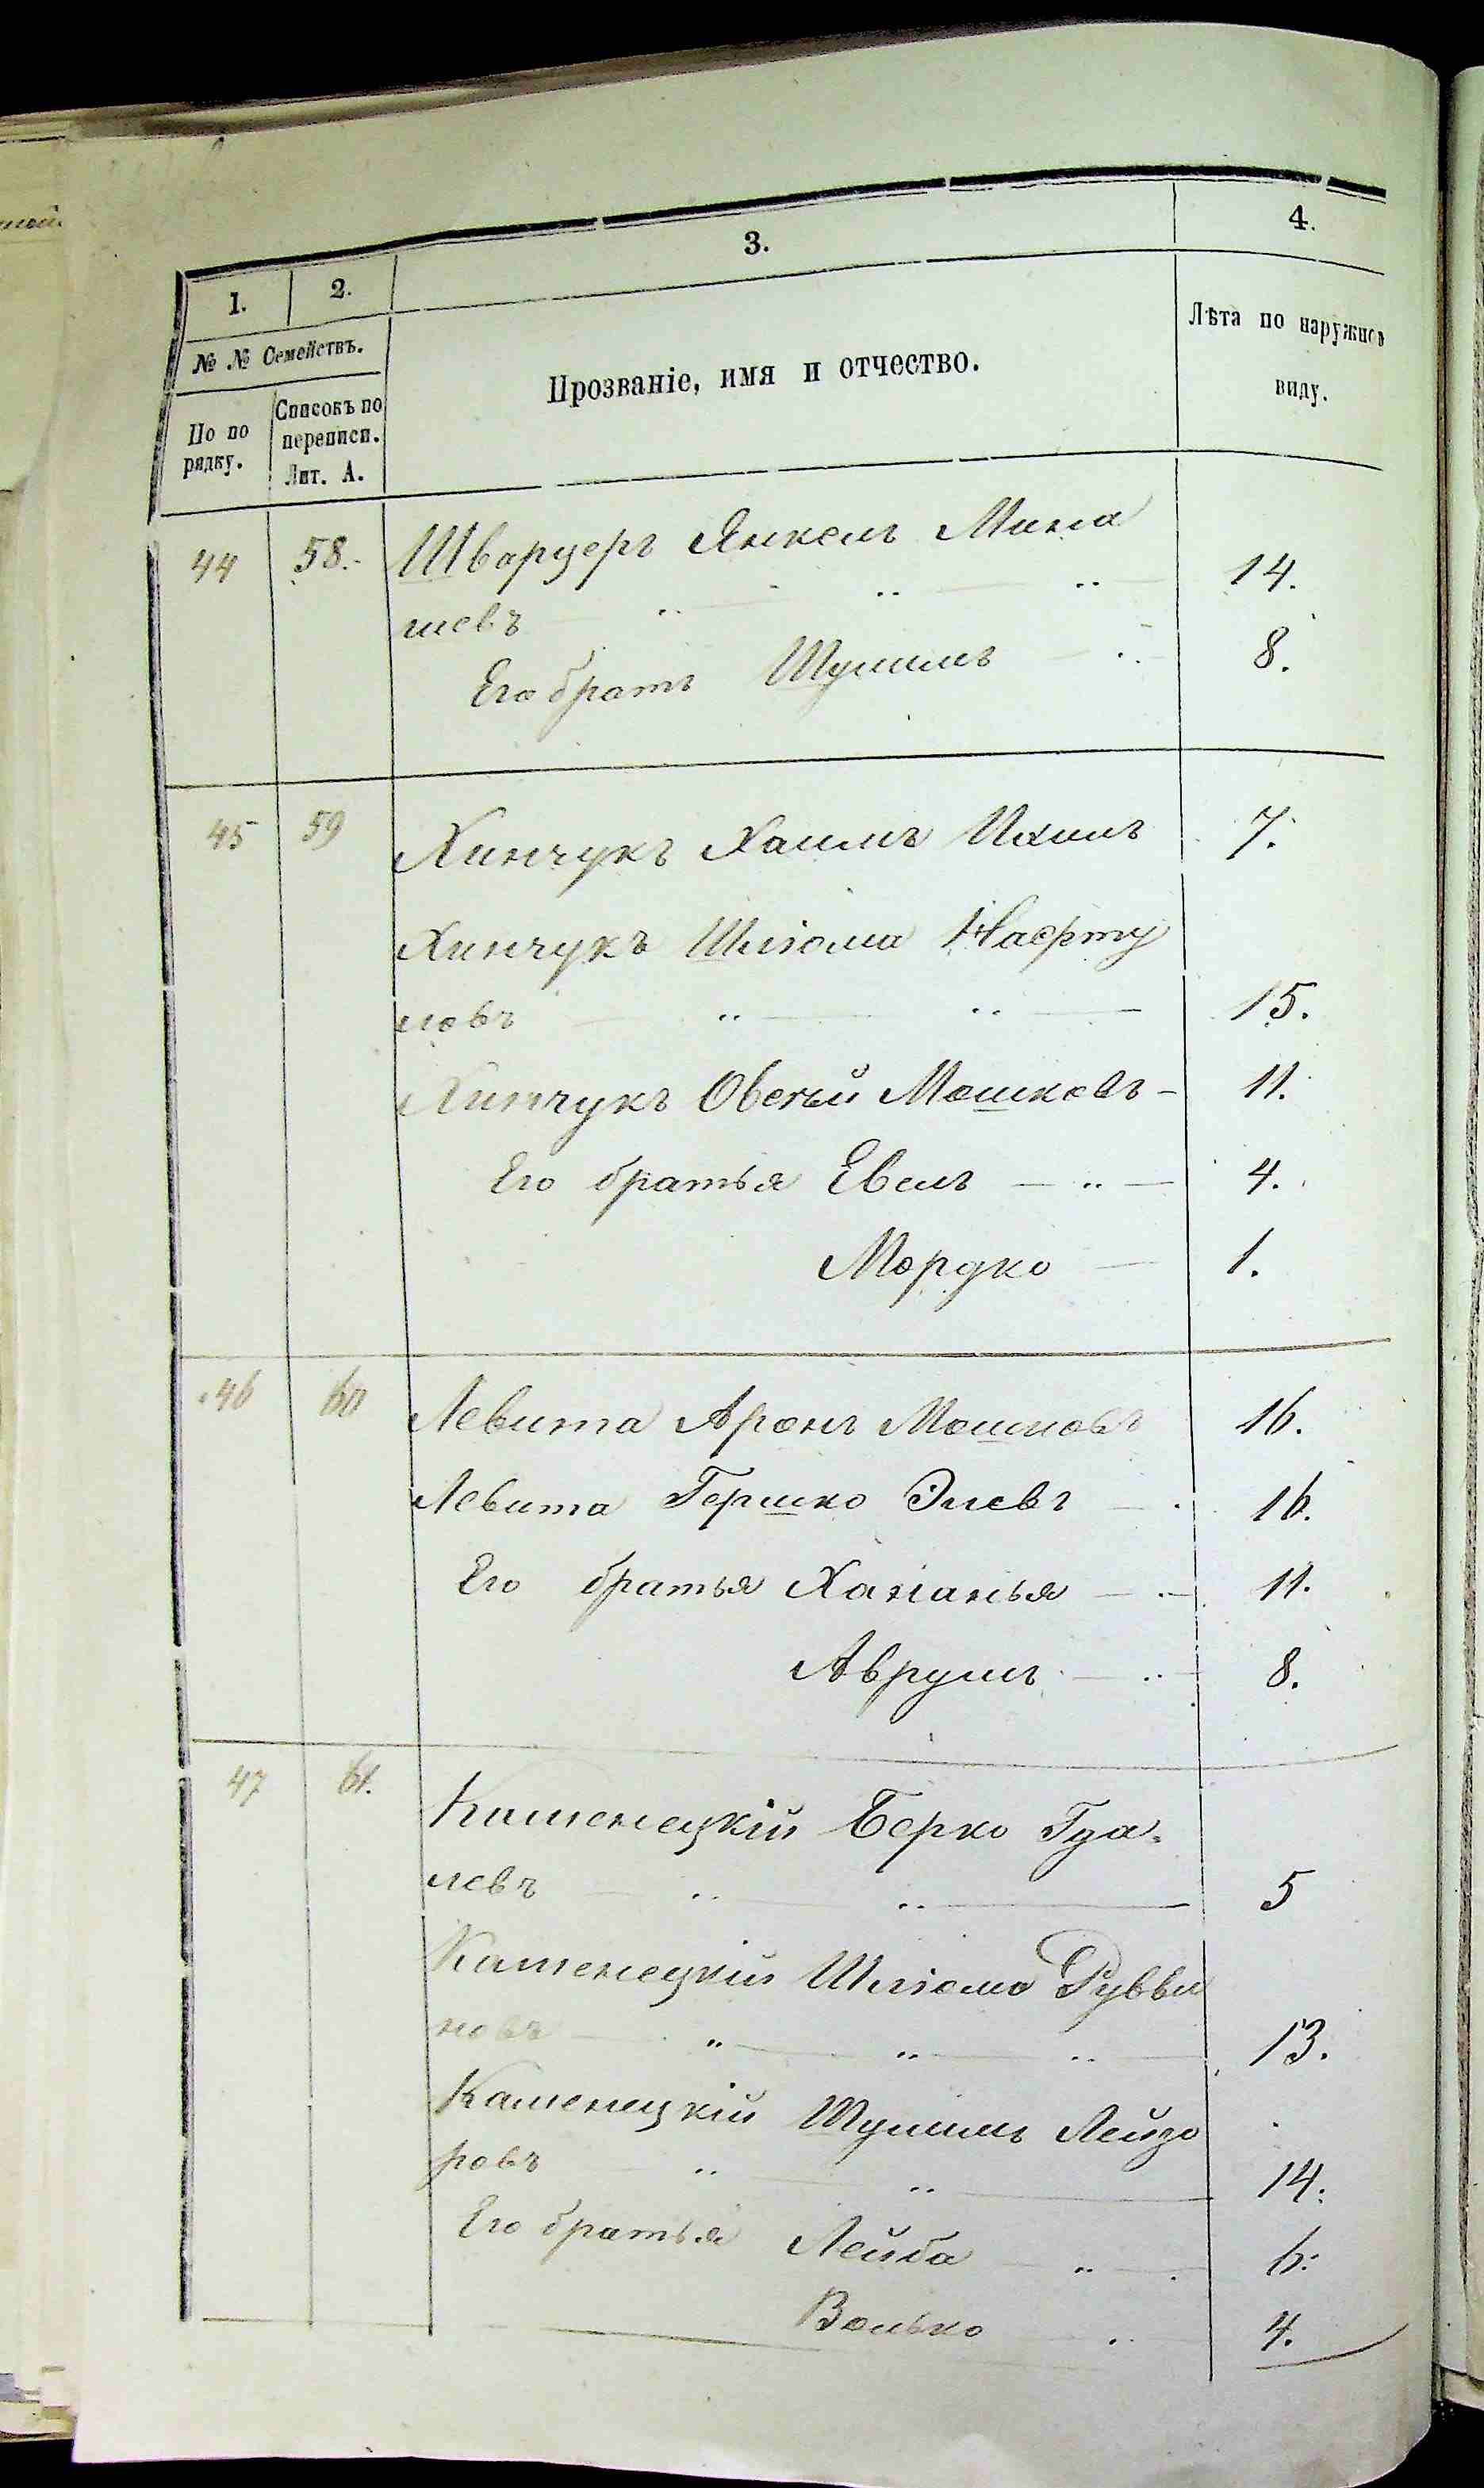 1. 2. 3. 4.
№ № Семействъ.
По по рядку.
Списокъ по переписи. Лит. А.
Прозваніе, имя и отчество.
Лѣта по наружнов
виду.
44 58. Шварцеръ Янкель Мана
шевъ 14.
Его братъ Шулимъ 8.
45 59 Хинчукъ Хаимъ Ицинъ 7.
Хинчукъ Шліома Нафту
ловъ 15.
Хинчукъ Овсѣй Мошковъ 11.
Его братья Евель 4.
Мордко 1.
46 60 Левита Аронъ Мошковъ 16.
Левита Гершко Элевъ 16.
Его братья Хананья 11.
Аврумъ 8.
47 61. Каменецкій Берко Гда-
левъ 5
Каменецкій Шліома Рувви
новъ 13.
Каменецкій Шулимъ Лейзо
ровъ 14.
Его братья Лейба 6.
Волько 4.